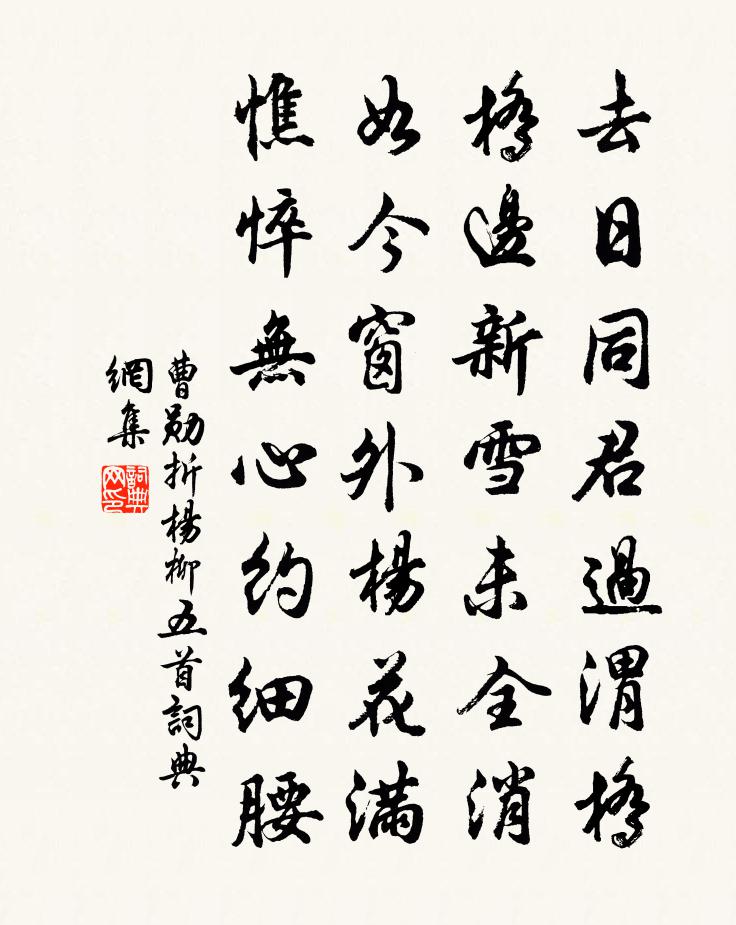 去日同君過渭橋
橋邊新雪未全消
如今窗外楊花滿
憔悴無心約細腰
曹勛折楊柳五首詞典
網集
詞典網印